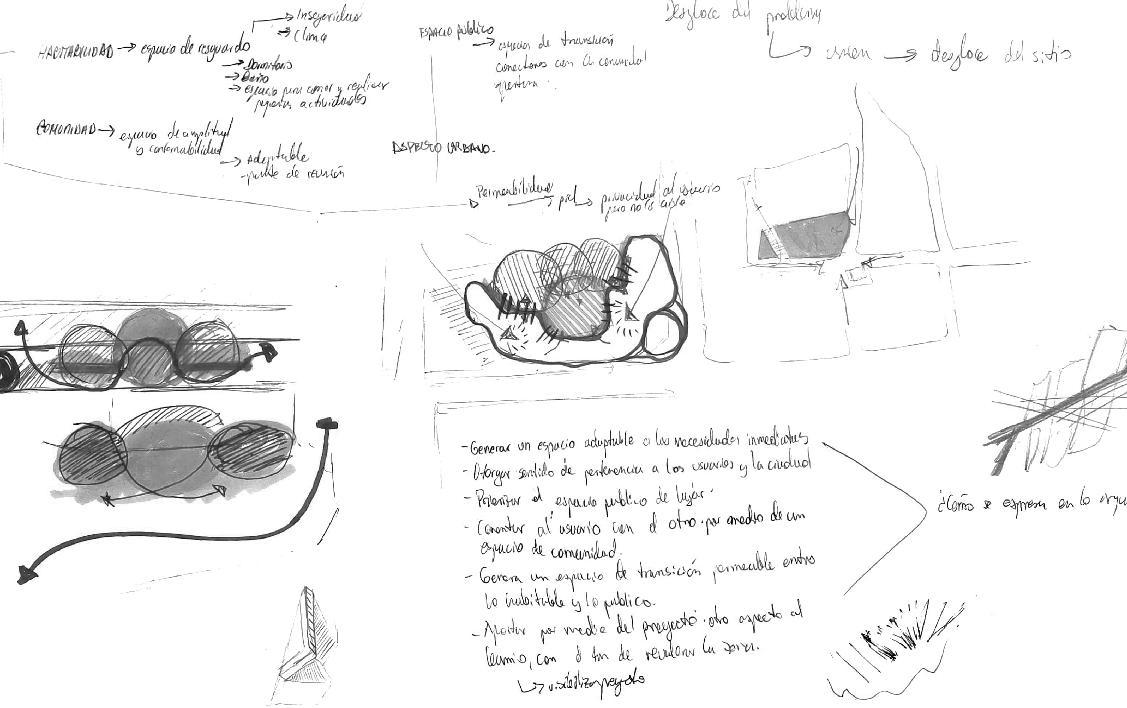 → Inseguridad
→ Clima
HABITABILIDAD → espacio de resguardo
→ Dormitorio
→ Baño
→ espacio para comer y realizar
pequeñas actividades
COMUNIDAD → espacio de amplitud
y
→ adaptable
- punto de reunión
ESPACIO PÚBLICO
→ espacios de transición
con la comunidad
apertura.
ASPECTO URBANO.
Permeabilidad → piel → privacidad al usuario
pero no lo aísla
Desglose del problema
→ → desglose del sitio
- Generar un espacio adaptable a las necesidades inmediatas
- Otorgar sentido de pertenencia a los usuarios y la ciudad
- Priorizar el espacio publico de lugar.
- Conectar al usuario con el otro por medio de un
espacio de comunidad.
- Genera un espacio de transición permeable entre
lo habitable y lo publico.
- Aportar por medio del proyecto otro aspecto al
barrio, con el fin de la zona.
¿Cómo se expresa en lo arqu